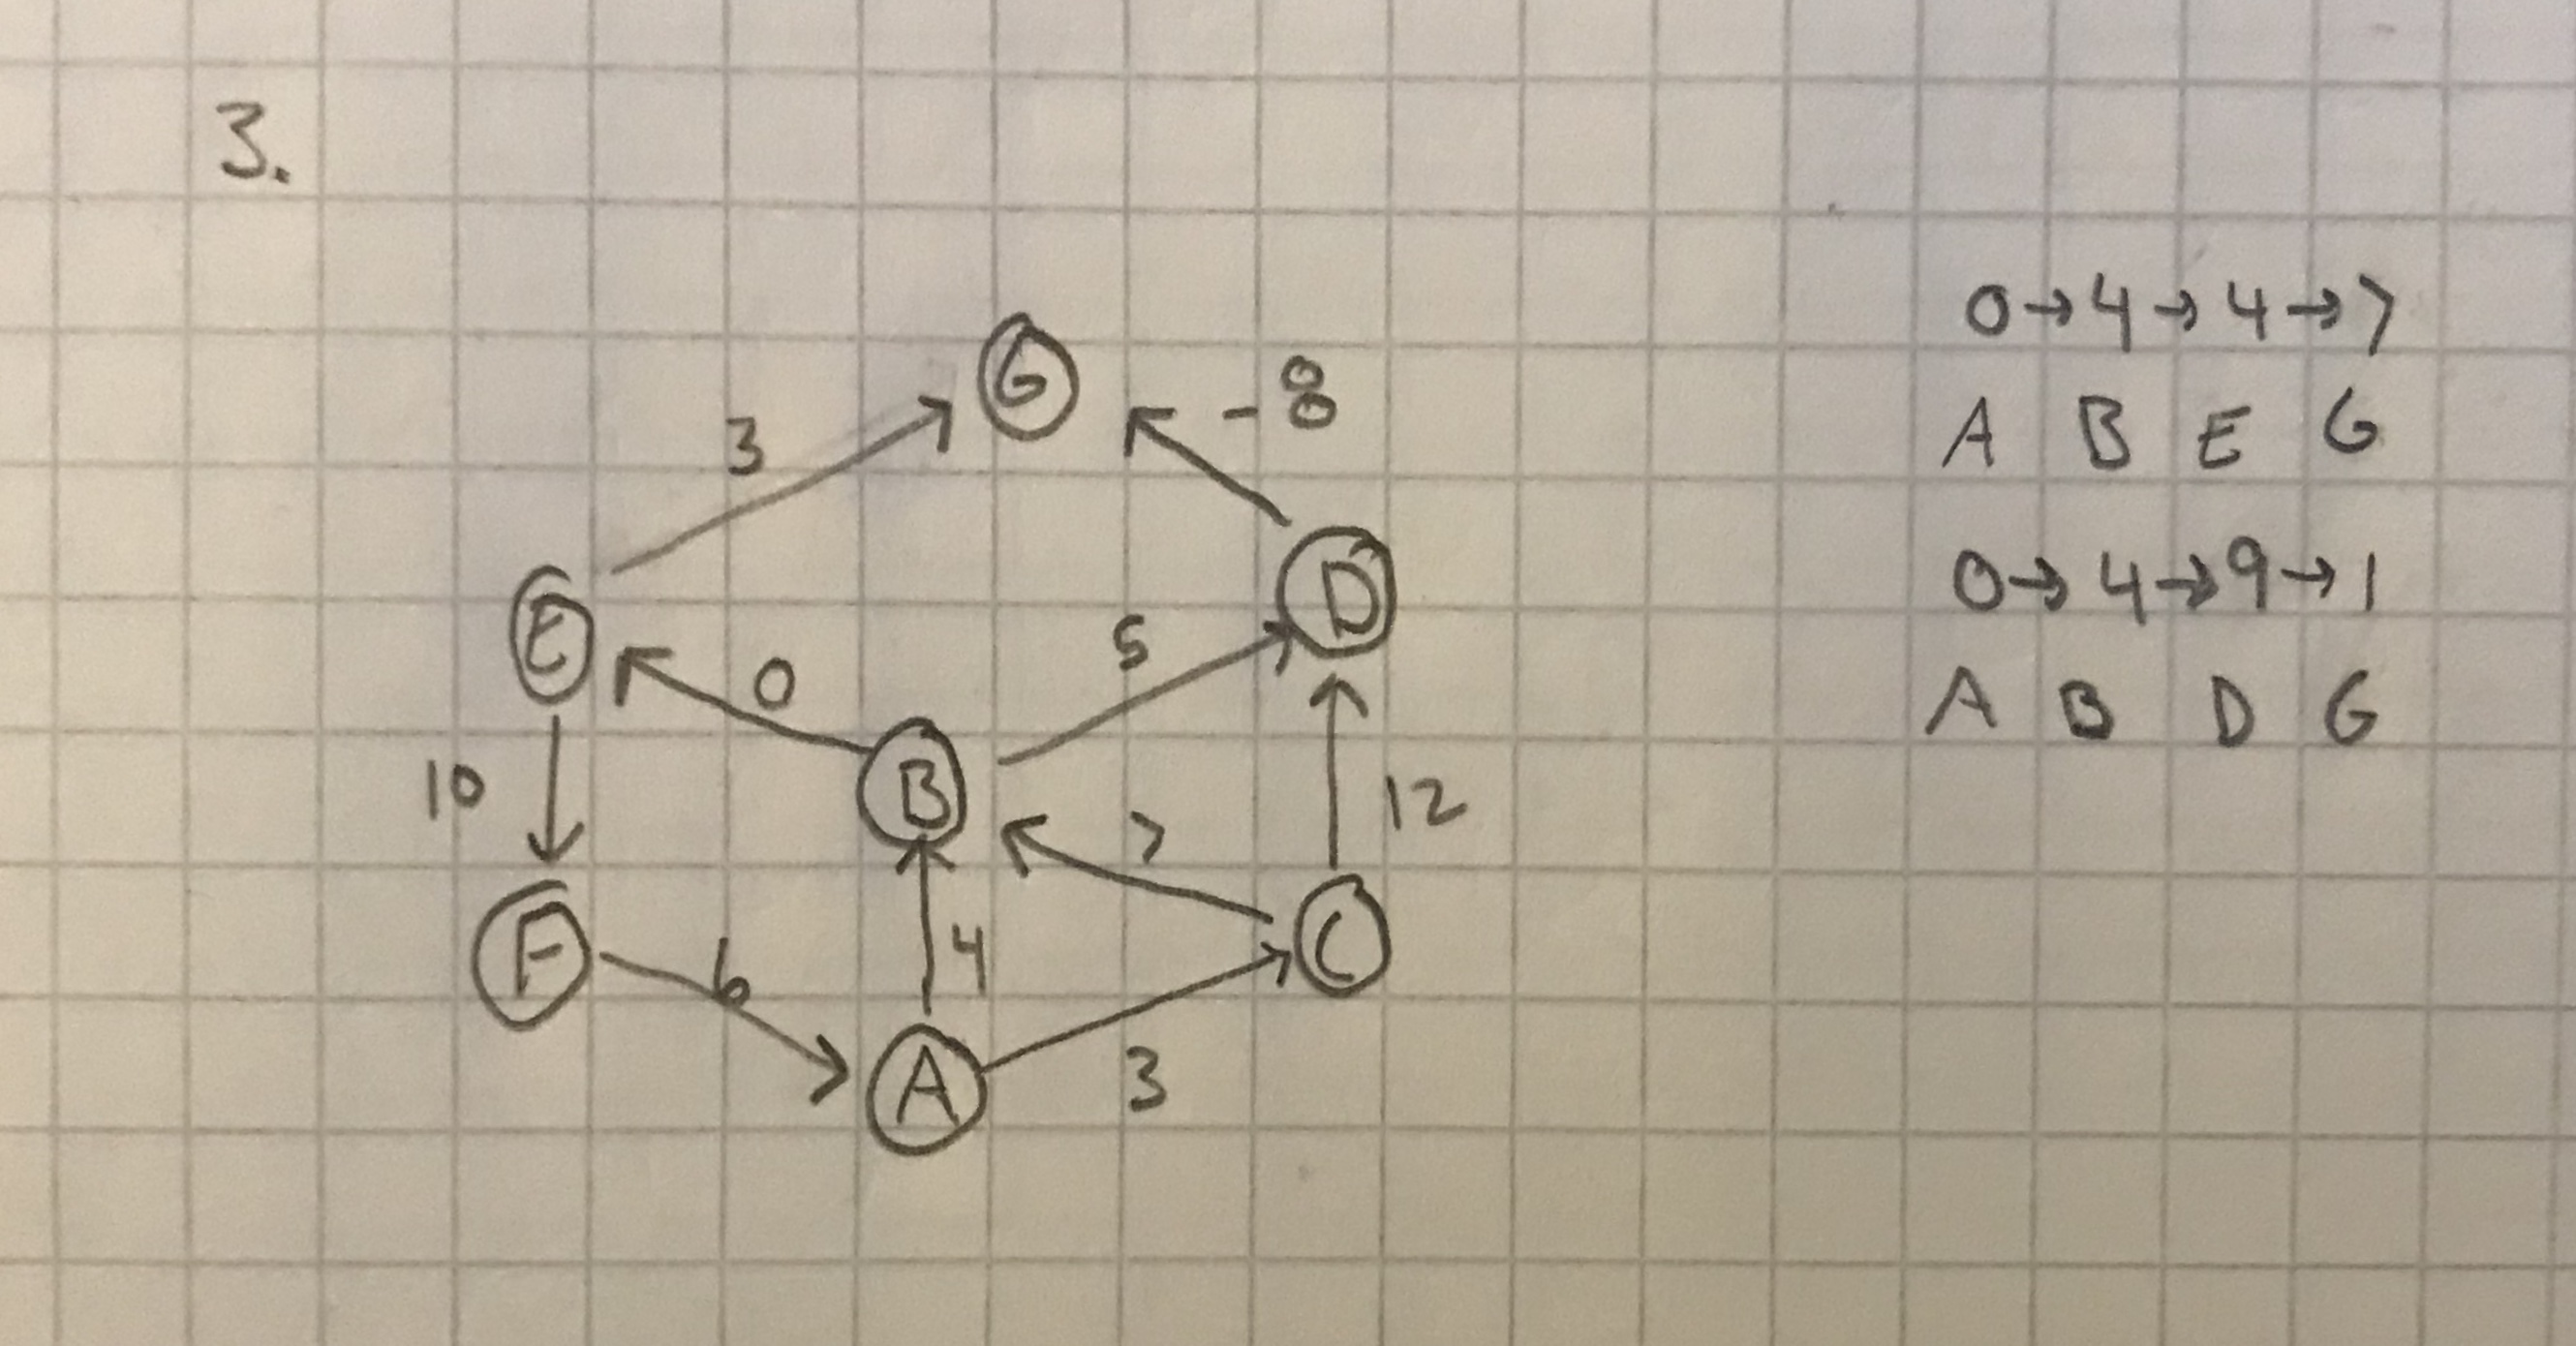 3.
G
3
-8
E
D
0
5
10
B
7
12
F
6
4
C
A
3
0→4→4→7
A B E G
0→4→9→1
A B D G